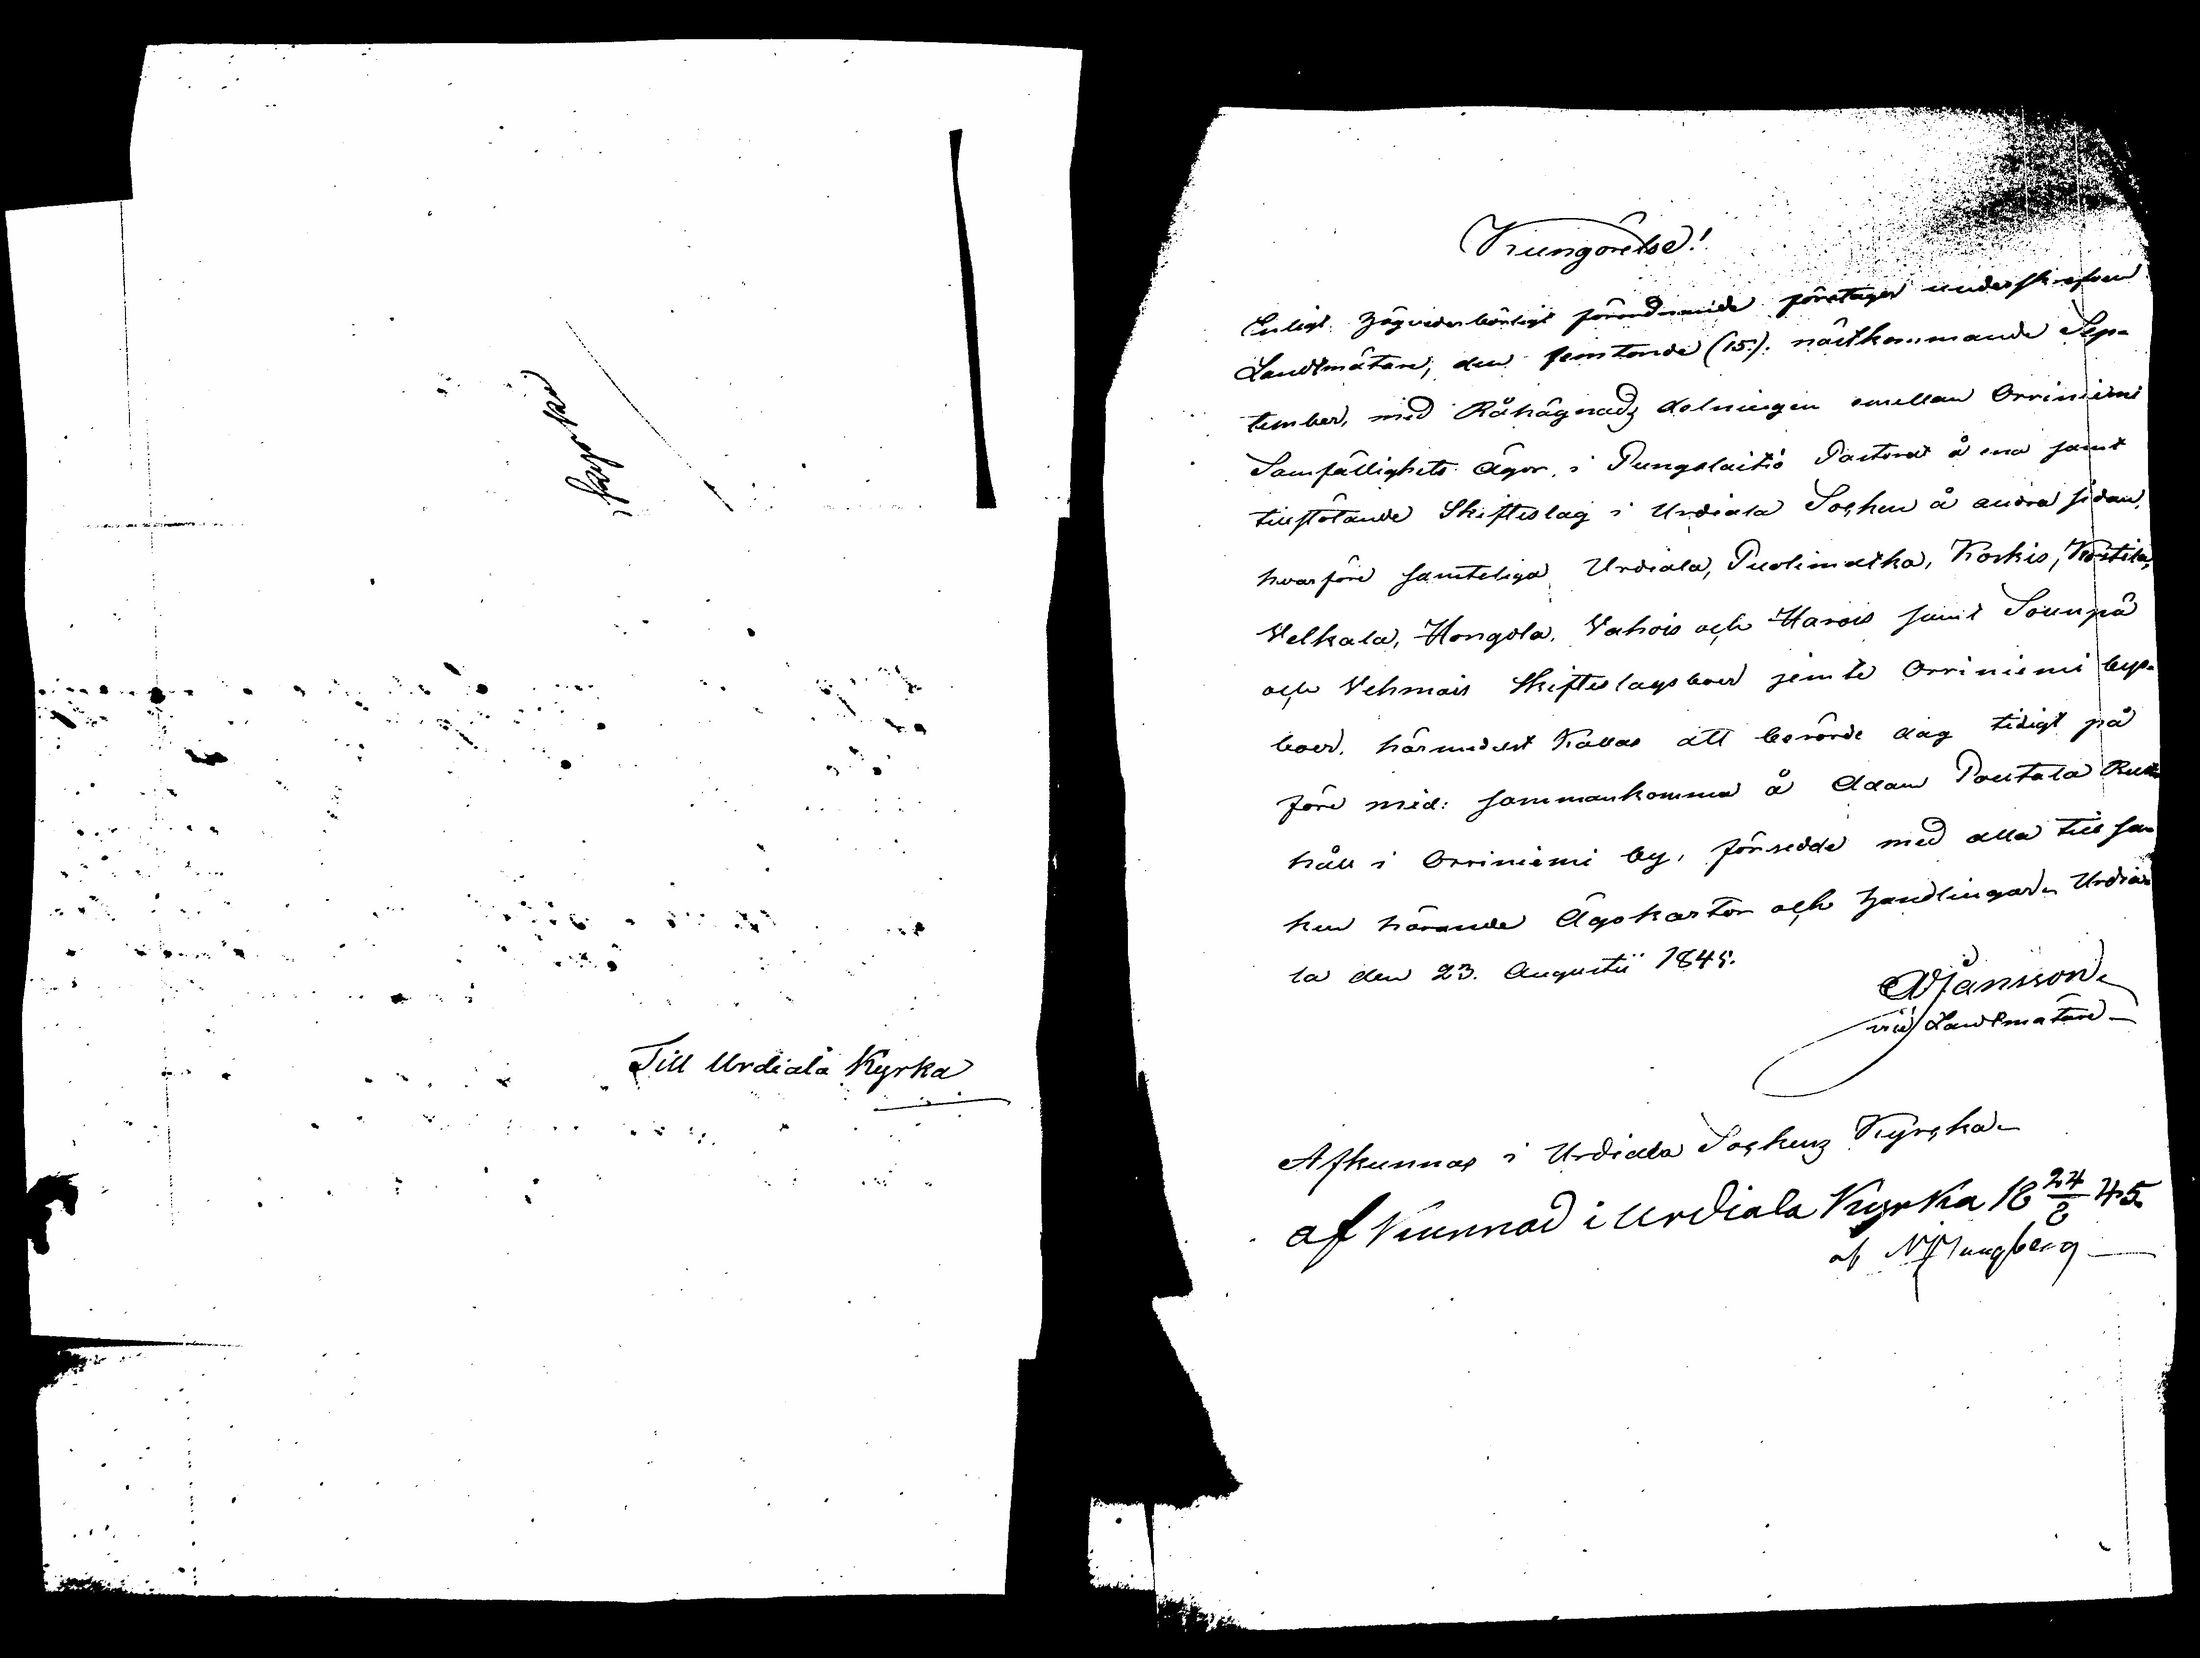 Till Urdiala Kyrka
Kungörelse!
Enligt Högvederbörligt förordnande företager underskrefven
Landtmätare, den femtonde (15:). nästkommande Sep-
tember, med Råhägnads delningen emellan Orriniemi
Samfällighets Ägor, i Pungalaitio Pastorat å ena samt
tillstötande Skifteslag i Urdiala Socken å andra sidan,
hvarföre samteliga Urdiala, Puolimatka, Koskis, Kostila,
Velkala, Hongola, Vahois och Harois samt Sounpä
och Vehmais Skifteslagsboer jemte Orriniemi by-
boer, härmedelst Kallas att berörde dag tidigt på
före mid: sammankomma å Adam Poutala Rust
håll i Orriniemi by, försedde med alla till sa-
ken hörande Ägokartor och Handlingar. Urdia-
la den 23. Augustii 1845.
Jansson.
vice Landtmätare
Afkunnas i Urdiala Sockens Kyrcka
af Kunnad i Urdiala Kyrka 18 24/8 45.
af Ljungberg